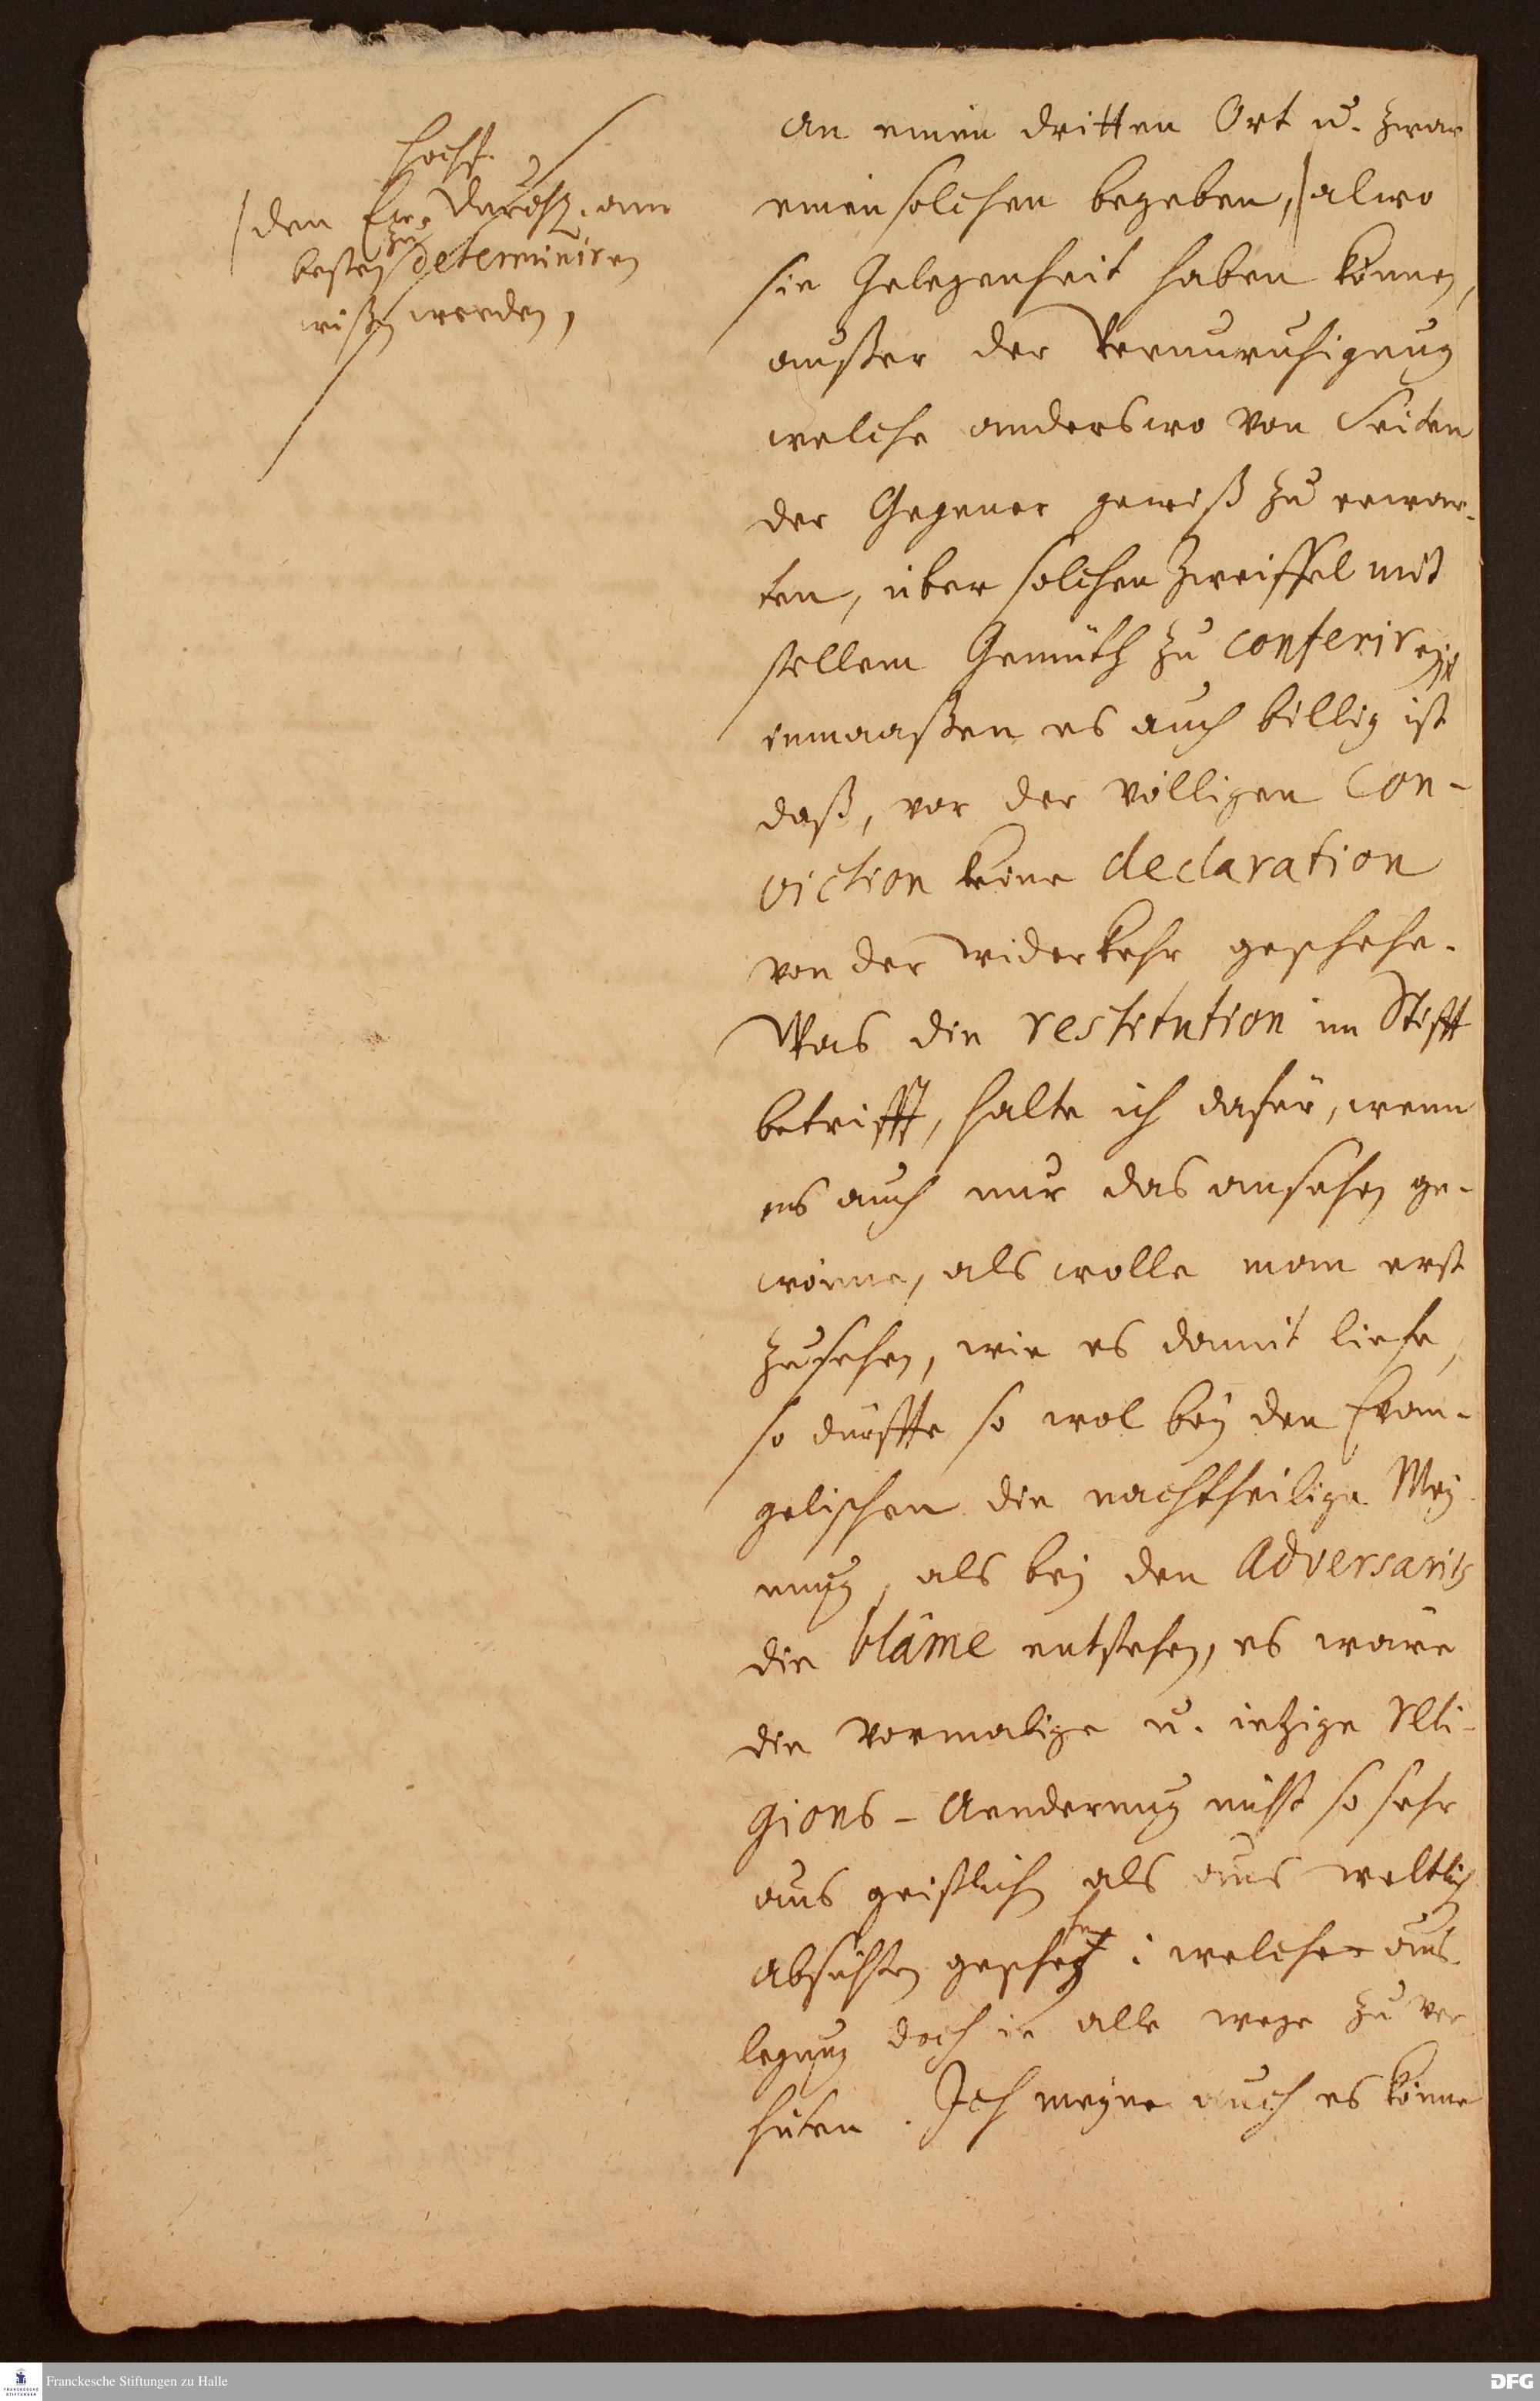 Hochf.
den Ew. Durchl. am
besten zu determiniren
wißen werden,
an einen dritten Ort u. zwar
einen solchen begeben, alwo
sie Gelegenheit haben können,
außer der Verunruhigung
welche anderswo von Seiten
der Gegener gewiß zu erwar-
ten, über solchen Zweiffel mit
stillem Gemüth zu conferiren
inmaaßen es auch billig ist
daß, vor der völligen Con-
viction keine declaration
von der Widerkehr geschehe.
Was die restitution im Stifft
betrifft, halte ich dafür, wenn
es auch nur das ansehen ge-
wönne, als wolle man erst
zusehen, wie es damit liefe,
so dürffte so wol bey den Evan-
gelischen die nachtheilige Mey-
nung, als bey den Adversariis
die blâme entstehen, es wäre
die vormalige u. ietzige Reli-
gions-Aenderung nicht so sehr
aus geistlichen als aus weltlichen
Absichten geschehen: welche aus-
legung doch in alle wege zu ver-
hüten. Ich meyne auch es könne
Franckesche Stiftungen zu Halle
DFG